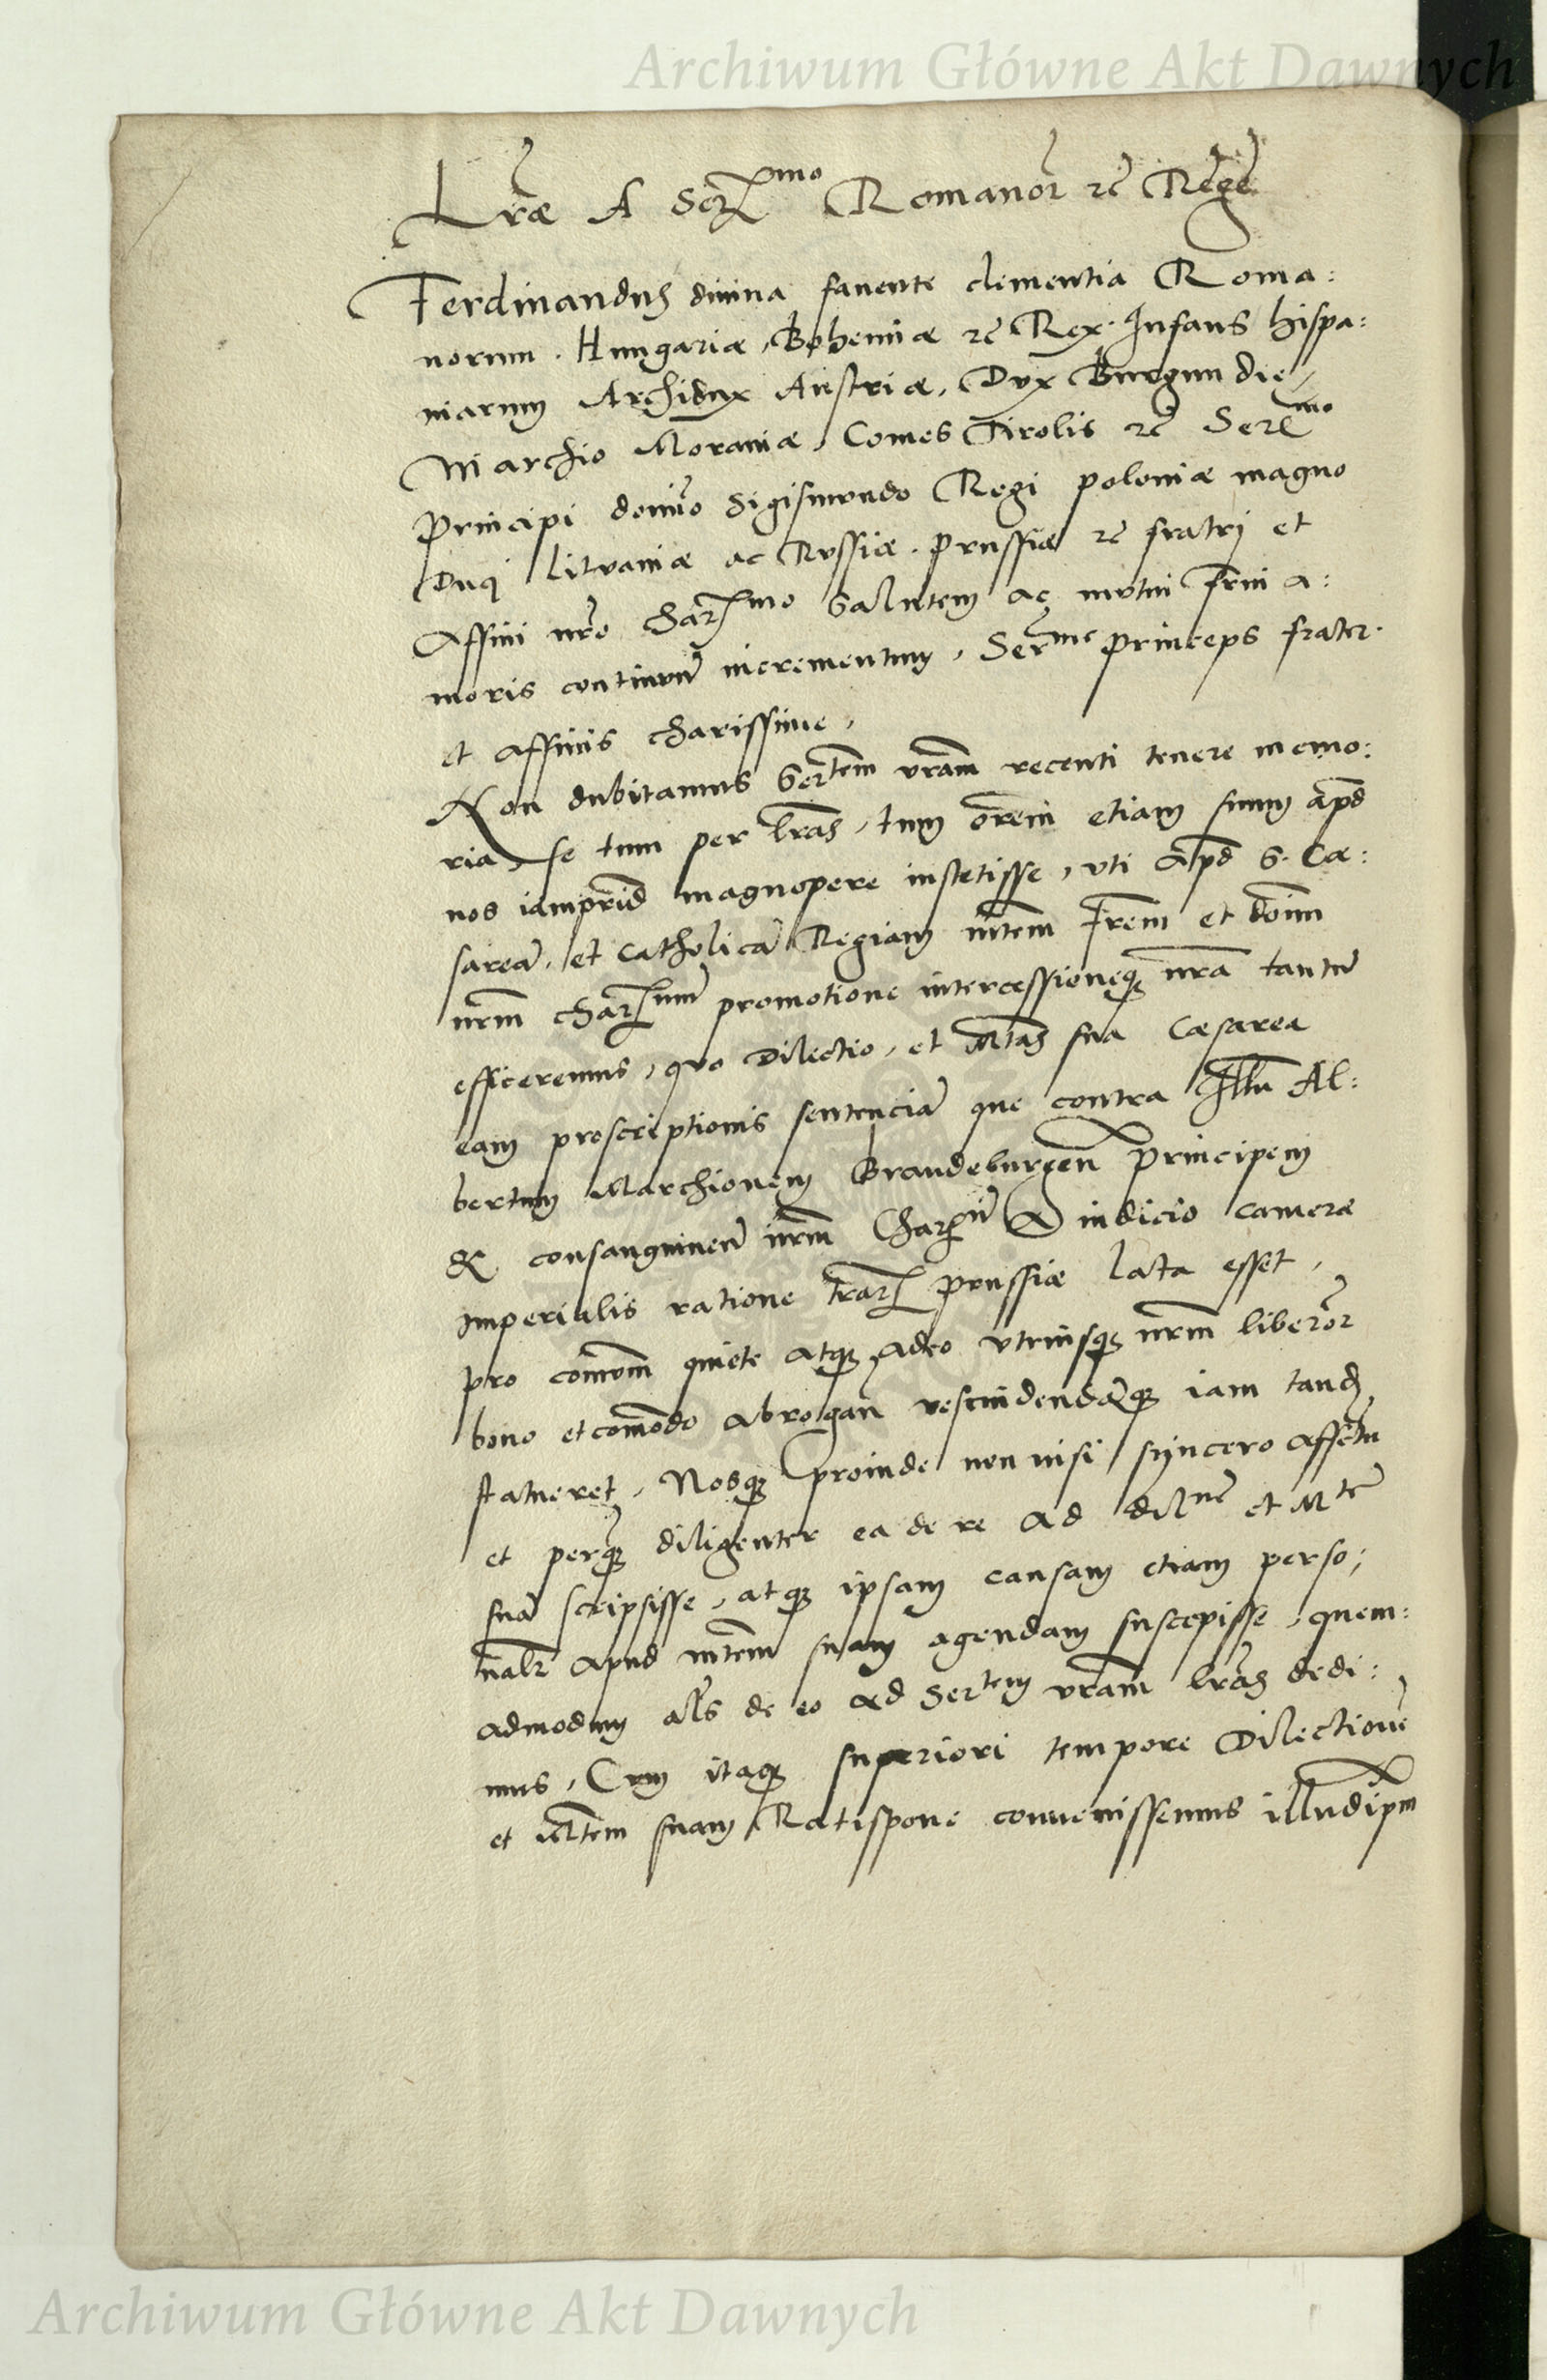 Archiwum Główne Akt Dawnych
Lr̃æ A Ser^mo Romanor̃ ꝛc̃ Rege
Ferdinandus divina favente clementia Roma:
norum. Hungariæ, Bohemiæ ꝛc̃ Rex. Infans Hispa:
niarum Archidux Austriæ, Dux Burgundie,
Marchio Moraviæ, Comes Tirolis ꝛc̃ Ser^mo
Principi domĩo Sigismundo Regi poloniæ magno
Duci Litvaniæ ac Rvssiæ. prussiæ ꝛc̃ fratri et
Affini nr̃o char^mo Salutem ac mutui fr̃ni a:
moris continuũ incrementum, Ser^me princeps frater
et affinis charissime,
Non dubitamus Ser^tem vr̃am recenti tenere memo:
ria, se tum per lr̃as, tum or̃em etiam suum apd̃
nos iampridẽ magnopere institisse, vti apd̃ S. Cæ:
sareã, et Catholicã Regiam mtem fr̃em et dom̃
nr̃m char^mum promotione intercessioneqꝫ nr̃a tantũ
efficeremus, quo Dilectio, et Mtas sua Cæsarea
eam proscriptionis sentenciã que contra Illm̃ Al:
bertum Marchionem Brandeburgeñ principem
& consanguineũ nr̃m Char^m̃ A iudicio cameræ
imperialis ratione terrar̃ prussiæ lata esset,
pro com̃uni quiete atqꝫ adeo vtriusqꝫ nr̃m liberor̃
bono et com̃odo abrogañ rescindendãqꝫ iam tandẽ
statueret, Nosqꝫ proinde non nisi syncero affectu
et perqꝫ diligenter ea de re ad dil^nẽ et M^tẽ
suã scripsisse, atqꝫ ipsam causam etiam perso:
nalr̃ apud mtem suam agendam suscepisse, quem:
admodum als̃ de eo ad Ser^tem vr̃am lr̃as dedi:
mus, Cum itaqꝫ superiori tempore Dilectionẽ
et Mtem suam Ratispone convenissemus illud ip̃m
Archiwum Główne Akt Dawnych